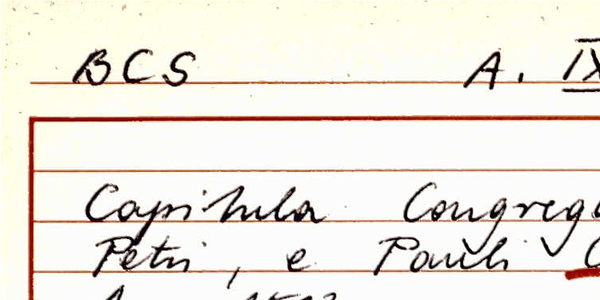 BCS A. IX
Capitula Congreg
Petri, e Pauli